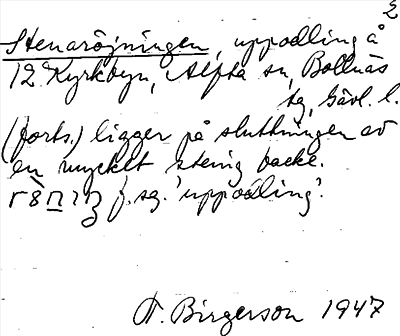 2
Stenaröjningen, uppodling å
12 Kyrkbyn, Alfta sn, Bollnäs
tg, Gävl. l.
(forts.) ligger på sluttningen av
en mycket stenig backe.
f. sg. 'uppodling'.
T. Birgerson 1947